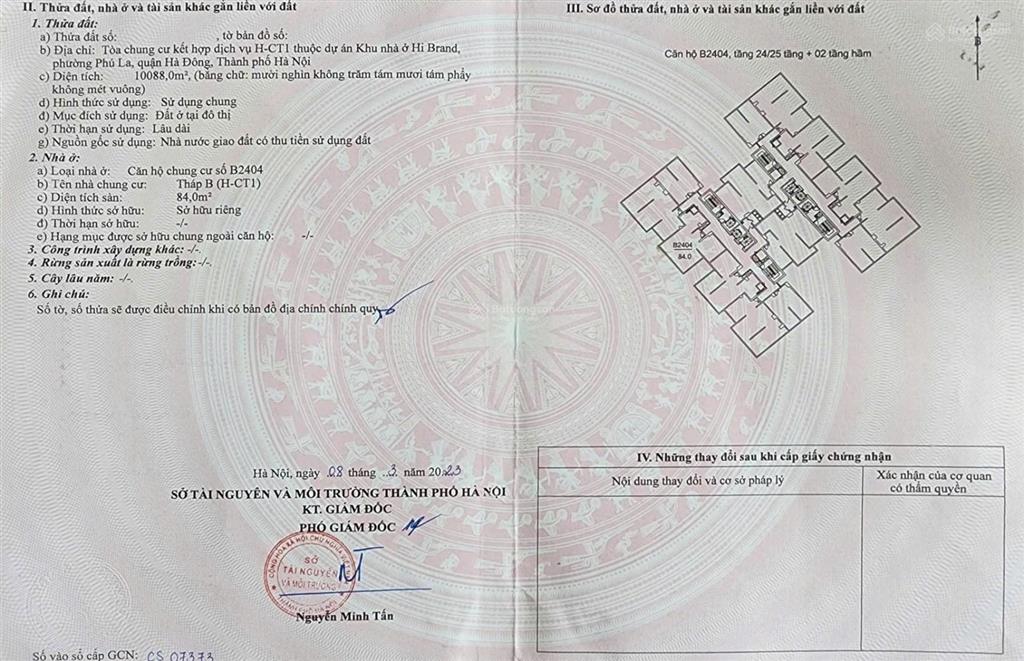 II. Thửa đất, nhà ở và tài sản khác gắn liền với đất
1. Thửa đất:
a) Thửa đất số: , tờ bản đồ số:
b) Địa chỉ: Tòa chung cư kết hợp dịch vụ H-CT1 thuộc dự án Khu nhà ở Hi Brand,
phường Phú La, quận Hà Đông, Thành phố Hà Nội
c) Diện tích: 10088,0m², (bằng chữ: mười nghìn không trăm tám mươi tám phẩy
không mét vuông)
d) Hình thức sử dụng: Sử dụng chung
đ) Mục đích sử dụng: Đất ở tại đô thị
e) Thời hạn sử dụng: Lâu dài
g) Nguồn gốc sử dụng: Nhà nước giao đất có thu tiền sử dụng đất
2. Nhà ở:
a) Loại nhà ở: Căn hộ chung cư số B2404
b) Tên nhà chung cư: Tháp B (H-CT1)
c) Diện tích sàn: 84,0m²
d) Hình thức sở hữu: Sở hữu riêng
đ) Thời hạn sở hữu: -/-
e) Hạng mục được sở hữu chung ngoài căn hộ: -/-
3. Công trình xây dựng khác: -/-.
4. Rừng sản xuất là rừng trồng:-/-.
5. Cây lâu năm: -/-.
6. Ghi chú:
Số tờ, số thửa sẽ được điều chỉnh khi có bản đồ địa chính chính quy
Hà Nội, ngày 08 tháng 3 năm 2023
SỞ TÀI NGUYÊN VÀ MÔI TRƯỜNG THÀNH PHỐ HÀ NỘI
KT. GIÁM ĐỐC
PHÓ GIÁM ĐỐC
CỘNG HÒA XÃ HỘI CHỦ NGHĨA
SỞ
TÀI NGUYÊN
VÀ MÔI TRƯỜNG
THÀNH PHỐ HÀ NỘI
Nguyễn Minh Tấn
Số vào sổ cấp GCN: CS 07373
III. Sơ đồ thửa đất, nhà ở và tài sản khác gắn liền với đất
Căn hộ B2404, tầng 24/25 tầng + 02 tầng hầm
B
B2404
84.0
IV. Những thay đổi sau khi cấp giấy chứng nhận
Nội dung thay đổi và cơ sở pháp lý
Xác nhận của cơ quan
có thẩm quyền